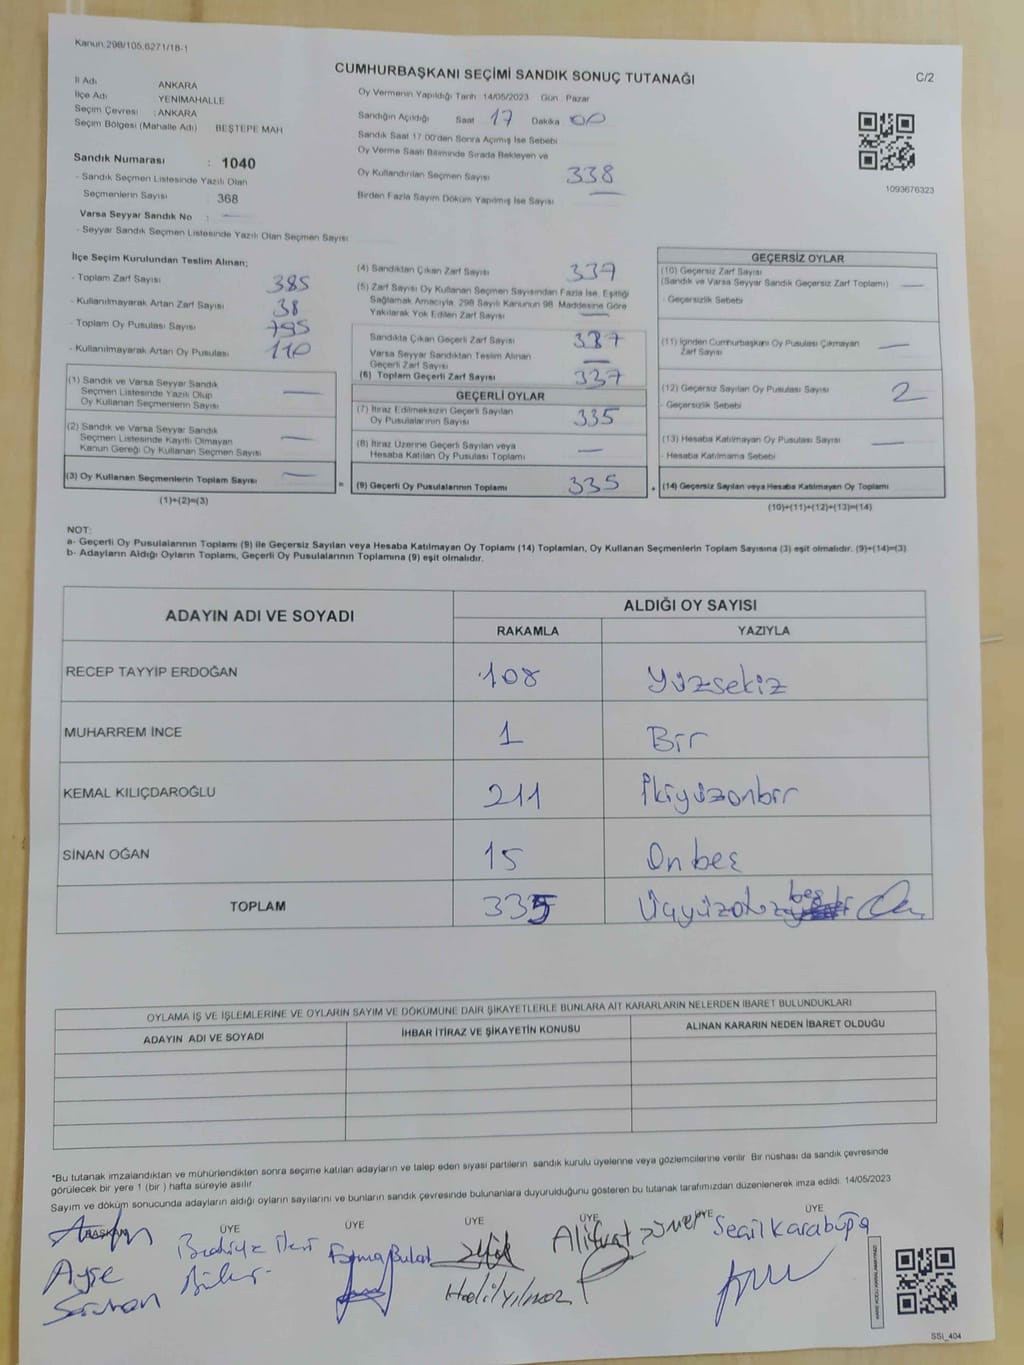 Kanun:298/105,6271/18-1
CUMHURBAŞKANI SEÇİMİ SANDIK SONUÇ TUTANAĞI
C/2
İl Adı ANKARA
İlçe Adı YENİMAHALLE
Seçim Çevresi : ANKARA
Seçim Bölgesi (Mahalle Adı) BEŞTEPE MAH
Sandık Numarası : 1040
- Sandık Seçmen Listesinde Yazılı Olan
Seçmenlerin Sayısı 368
Varsa Seyyar Sandık No :
- Seyyar Sandık Seçmen Listesinde Yazılı Olan Seçmen Sayısı
Oy Vermenin Yapıldığı Tarih 14/05/2023 Gün Pazar
Sandığın Açıldığı Saat 17 Dakika 00
Sandık Saat 17.00'den Sonra Açılmış İse Sebebi
Oy Verme Saati Bitiminde Sırada Bekleyen ve
Oy Kullandırılan Seçmen Sayısı 338
Birden Fazla Sayım Döküm Yapılmış İse Sayısı
1093676323
İlçe Seçim Kurulundan Teslim Alınan;
- Toplam Zarf Sayısı 385
- Kullanılmayarak Artan Zarf Sayısı 38
- Toplam Oy Pusulası Sayısı 795
- Kullanılmayarak Artan Oy Pusulası 110
(1) Sandık ve Varsa Seyyar Sandık
Seçmen Listesinde Yazılı Olup
Oy Kullanan Seçmenlerin Sayısı
(2) Sandık ve Varsa Seyyar Sandık
Seçmen Listesinde Kayıtlı Olmayan
Kanun Gereği Oy Kullanan Seçmen Sayısı
(3) Oy Kullanan Seçmenlerin Toplam Sayısı
(1)+(2)=(3)
(4) Sandıktan Çıkan Zarf Sayısı 337
(5) Zarf Sayısı Oy Kullanan Seçmen Sayısından Fazla İse, Eşitliği
Sağlamak Amacıyla, 298 Sayılı Kanunun 98. Maddesine Göre
Yakılarak Yok Edilen Zarf Sayısı
Sandıkta Çıkan Geçerli Zarf Sayısı 337
Varsa Seyyar Sandıktan Teslim Alınan
Geçerli Zarf Sayısı
(6) Toplam Geçerli Zarf Sayısı 337
GEÇERLİ OYLAR
(7) İtiraz Edilmeksizin Geçerli Sayılan
Oy Pusulalarının Sayısı 335
(8) İtiraz Üzerine Geçerli Sayılan veya
Hesaba Katılan Oy Pusulası Toplamı
= (9) Geçerli Oy Pusulalarının Toplamı 335
GEÇERSİZ OYLAR
(10) Geçersiz Zarf Sayısı
(Sandık ve Varsa Seyyar Sandık Geçersiz Zarf Toplamı)
- Geçersizlik Sebebi
(11) İçinden Cumhurbaşkanı Oy Pusulası Çıkmayan
Zarf Sayısı
(12) Geçersiz Sayılan Oy Pusulası Sayısı 2
- Geçersizlik Sebebi
(13) Hesaba Katılmayan Oy Pusulası Sayısı
- Hesaba Katılmama Sebebi
+ (14) Geçersiz Sayılan veya Hesaba Katılmayan Oy Toplamı
(10)+(11)+(12)+(13)=(14)
NOT:
a- Geçerli Oy Pusulalarının Toplamı (9) ile Geçersiz Sayılan veya Hesaba Katılmayan Oy Toplamı (14) Toplamları, Oy Kullanan Seçmenlerin Toplam Sayısına (3) eşit olmalıdır. (9)+(14)=(3)
b- Adayların Aldığı Oyların Toplamı, Geçerli Oy Pusulalarının Toplamına (9) eşit olmalıdır.
ADAYIN ADI VE SOYADI ALDIĞI OY SAYISI
RAKAMLA YAZIYLA
RECEP TAYYİP ERDOĞAN 108 Yüzsekiz
MUHARREM İNCE 1 Bir
KEMAL KILIÇDAROĞLU 211 İkiyüzonbir
SİNAN OĞAN 15 Onbeş
TOPLAM 335 Üçyüzotuz beş
OYLAMA İŞ VE İŞLEMLERİNE VE OYLARIN SAYIM VE DÖKÜMÜNE DAİR ŞİKAYETLERLE BUNLARA AİT KARARLARIN NELERDEN İBARET BULUNDUKLARI
ADAYIN ADI VE SOYADI İHBAR İTİRAZ VE ŞİKAYETİN KONUSU ALINAN KARARIN NEDEN İBARET OLDUĞU
*Bu tutanak imzalandıktan ve mühürlendikten sonra seçime katılan adayların ve talep eden siyasi partilerin sandık kurulu üyelerine veya gözlemcilerine verilir. Bir nüshası da sandık çevresinde
görülecek bir yere 1 (bir) hafta süreyle asılır
Sayım ve döküm sonucunda adayların aldığı oyların sayılarını ve bunların sandık çevresinde bulunanlara duyurulduğunu gösteren bu tutanak tarafımızdan düzenlenerek imza edildi. 14/05/2023
BAŞKAN ÜYE ÜYE ÜYE ÜYE ÜYE ÜYE
Ayşe
Fatma Bulat
Halil Yılmaz
Seçil Karabüpa
SSI_404